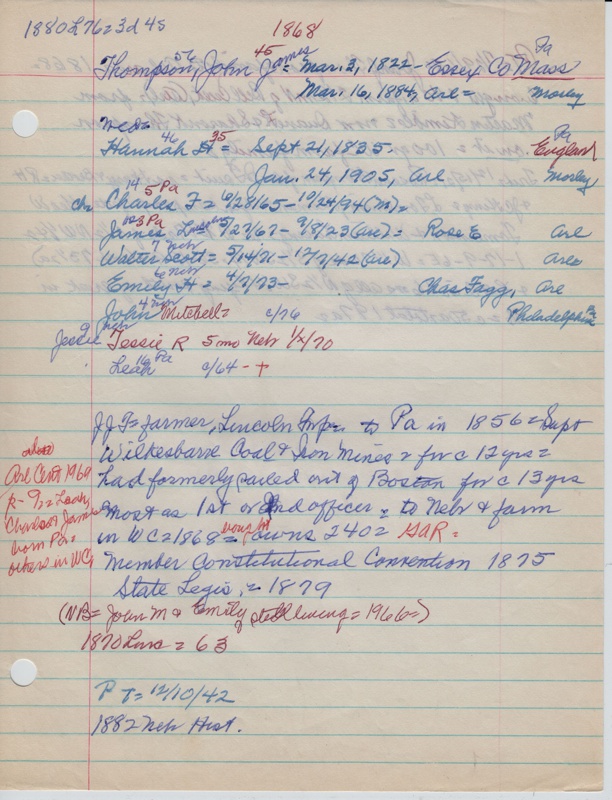 1880 L 76 = 3d 4s
1868
Thompson, 56 John James 45 = Mar. 2, 1822 - Essex Co Mass Pa
Mar. 16, 1884, Arl = Morley
Hannah 46 H 35 = Sept 21, 1835. England Pa
Jan. 24, 1905, Arl Morley
ch Charles F 14 5 Pa = 6/28/65 - 10/24/94 (m) =
James 3 Pa = 5/27/67 - 9/8/23 (Arl) = Rose E Arl
Walter Scott 7 Nebr = 5/14/71 - 12/7/42 (Arl) Arl
Emily H 6 Nebr = 4/2/73 - Chas Fagg, Arl
John Mitchell 4 Nebr = c/76 Philadelphia Pa
Jessie 9 Nebr Tessie R 5 mo Nebr 1/x/70
Leah 16 Pa c/64 - +
JJT = farmer, Lincoln Twp = to Pa in 1856 = Supt
Wilkesbarre Coal & Iron Mines = for c 12 yrs =
had formerly sailed out of Boston for c 13 yrs
most as 1st or 2nd officer = to Nebr & farm
in WC = 1868 = bought owns 240 = GAR =
Member Constitutional Convention 1875
State Legis, = 1879
Arl Cent 1969
Leah,
Charles & James
born Pa =
others in WC
(NB = John M & Emily still living = 1966 =)
1870 = 63
P T = 12/10/42
1882 Neb Hist.